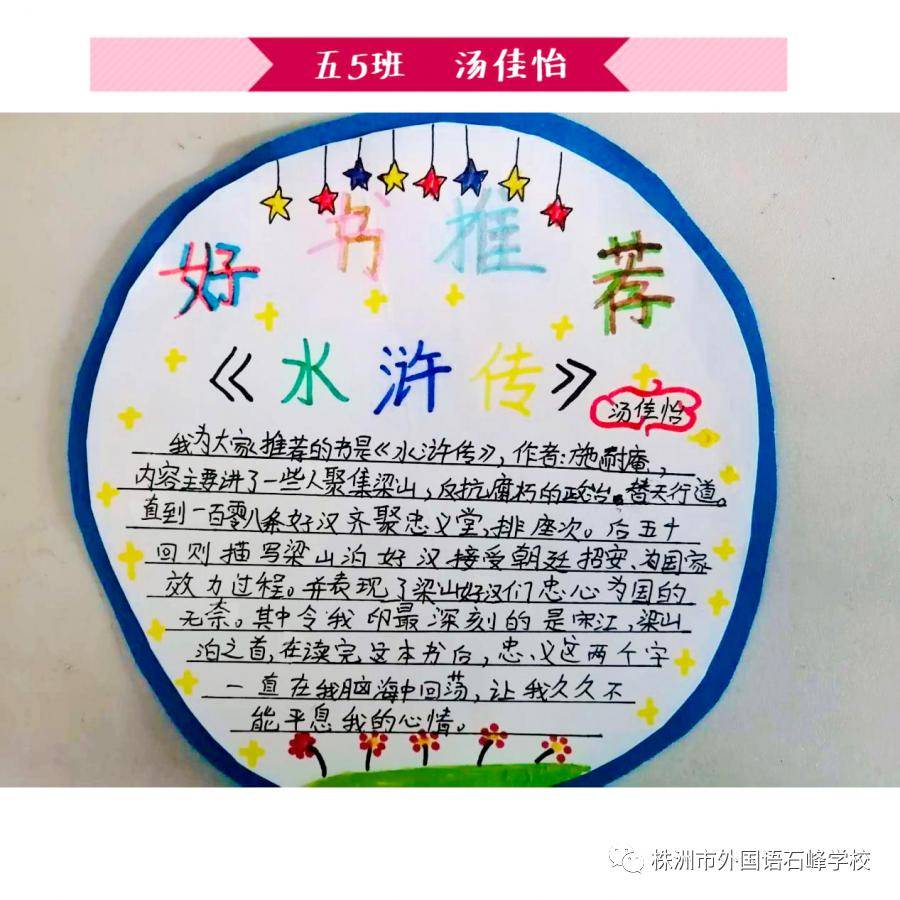 五5班 汤佳怡
好书推荐
《水浒传》
汤佳怡
我为大家推荐的书是《水浒传》,作者:施耐庵,
内容主要讲了一些人聚集梁山,反抗腐朽的政治。替天行道。
直到一百零八条好汉齐聚忠义堂,排座次。后五十
回则描写梁山泊好汉接受朝廷招安、为国家
效力过程。并表现了梁山好汉们忠心为国的
无奈。其中令我印最深刻的是宋江,梁山
泊之首,在读完这本书后,忠、义这两个字
一直在我脑海中回荡,让我久久不
能平息我的心情。
株洲市外国语石峰学校